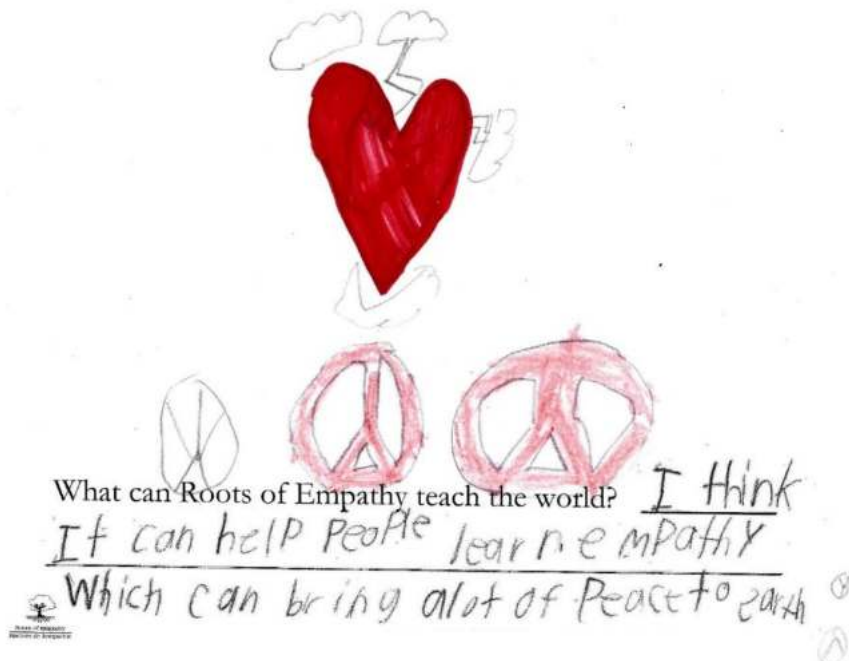 What can Roots of Empathy teach the world? I think
It can help People learn empathy
Which can bring alot of Peace to earth
Roots of Empathy
Racines de l'empathie